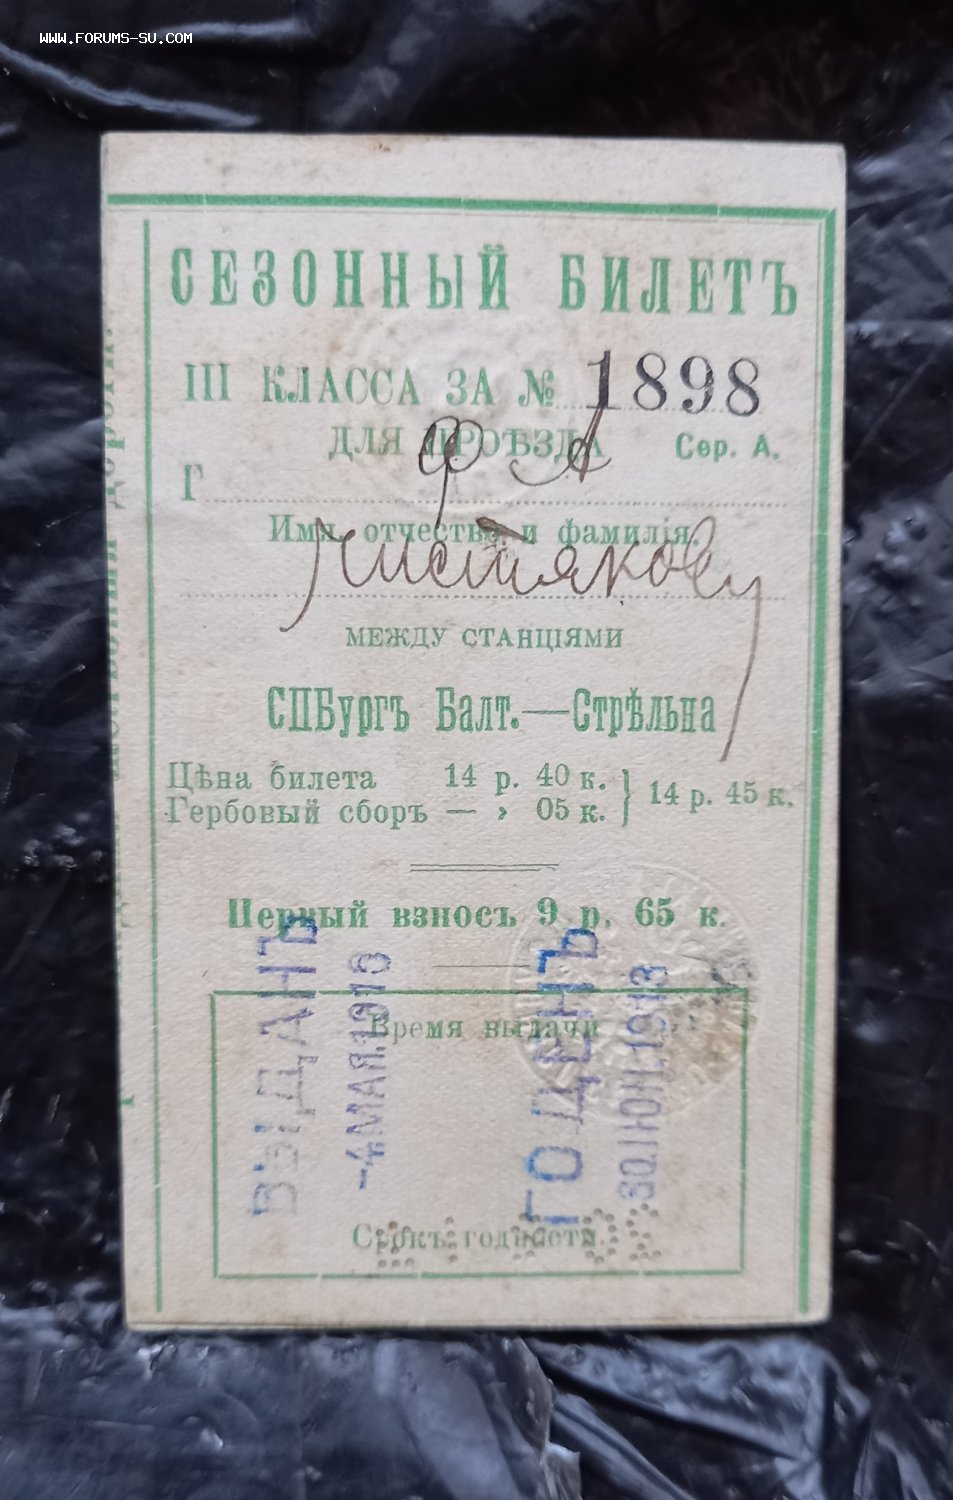 WWW.FORUMS-SU.COM
СЕЗОННЫЙ БИЛЕТЪ
III КЛАССА ЗА № 1898
ДЛЯ ПРОѢЗДА Сер. А.
Г
Ф А
Имя, отчество и фамилія.
Чистякову
МЕЖДУ СТАНЦІЯМИ
СПБургъ Балт.—Стрѣльна
Цѣна билета 14 р. 40 к.
Гербовый сборъ — › 05 к.
} 14 р. 45 к.
Первый взносъ 9 р. 65 к.
Время выдачи
ВЫДАНЪ
-4 МАЯ.1913
ГОДЕНЪ
30.ІЮН.1913
Срокъ годности.